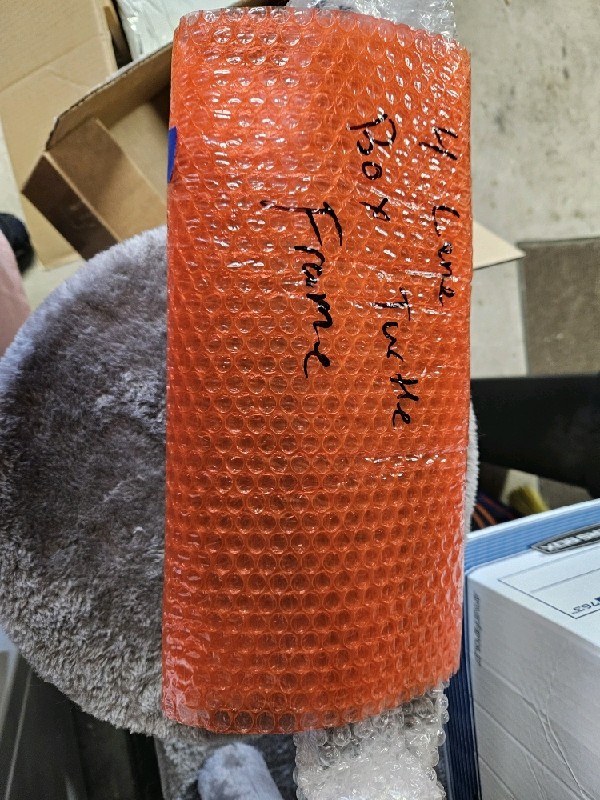 4 Lane
Box Turtle
Frame